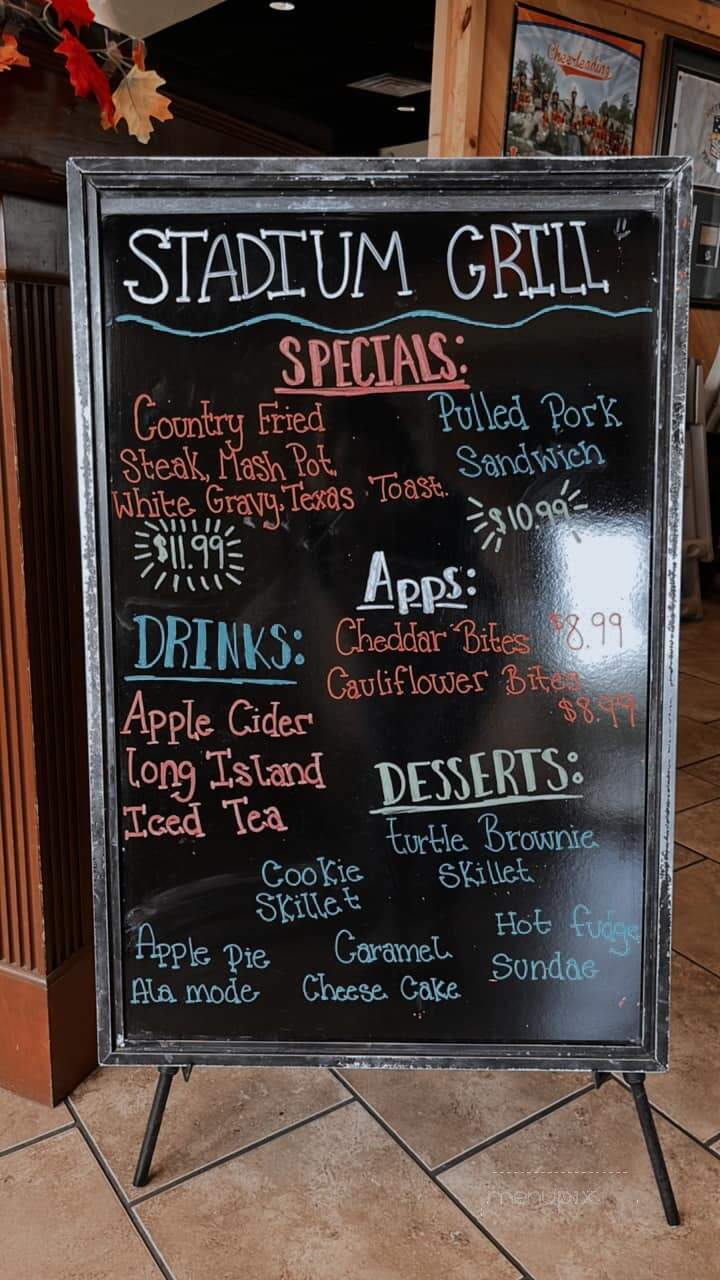 Cheerleading
STADIUM GRILL
SPECIALS:
Country Fried
Steak, Mash Pot,
White Gravy, Texas Toast.
$11.99
Pulled Pork
Sandwich
$10.99
Apps:
Cheddar Bites $8.99
Cauliflower Bites
$8.99
DRINKS:
Apple Cider
Long Island
Iced Tea
DESSERTS:
turtle Brownie
Skillet
Cookie
Skillet
Hot fudge
Sundae
Apple Pie
Ala mode
Caramel
Cheese Cake
menupix